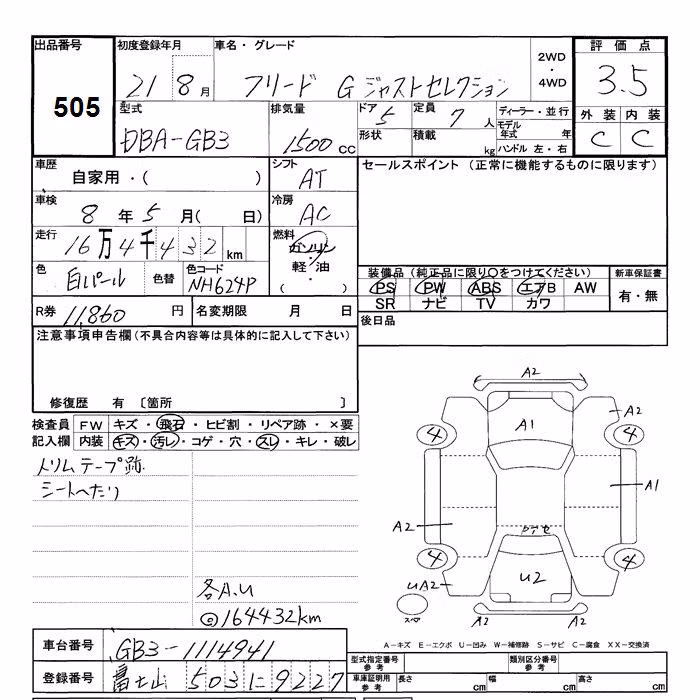 出品番号 初度登録年月 車名・グレード 2WD・4WD 評価点
505 21 8月 フリード G ジャストセレクション 3.5
型式 排気量 ドア 定員 ディーラー・並行 外装 内装
DBA-GB3 1500 cc 5 7人 モデル年式 年 C C
形状 積載 kg ハンドル 左・右
車歴 シフト セールスポイント (正常に機能するものに限ります)
自家用・( ) AT
車検 冷房
8年5月( 日) AC
走行 燃料
16万4千432km ガソリン・軽油・( )
色 色替 色コード 装備品(純正品に限り○をつけてください) 新車保証書
白パール NH624P PS PW ABS エアB AW 有・無
SR ナビ TV カワ
R券 11,860円 名変期限 月 日 後日品
注意事項申告欄(不具合内容等は具体的に記入して下さい)
修復歴 有 〔箇所 〕
検査員 FW キズ・飛石・ヒビ割・リペア跡・×要
記入欄 内装 キズ・汚レ・コゲ・穴・スレ・キレ・破レ
トリムテープ跡
シートへたり
各A.U
@164432km
A2
A1 A2
4 4
A1
A2
4 4
U2
UA2
A2 A2
A-キズ E-エクボ U-凹み W-補修跡 S-サビ C-腐食 XX-交換済
車台番号 GB3-1114941 型式指定番号 参考 類別区分番号 参考
登録番号 富士山 503 に 9227 車庫証明用 参考 長さ cm 幅 cm 高さ cm